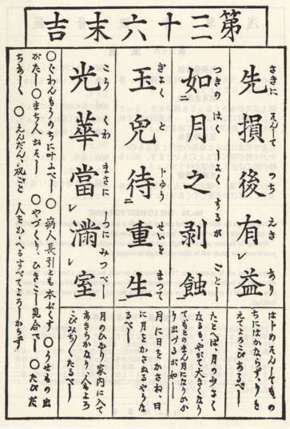 第三十六末吉
先損後有益
さきに そんして のち えき あり
はじめそんしてもの
ちにはかならず、りを
えてよろこびあるべし
如月之剥蝕
つきの はく しよく するが ごとし
たとへば、月の少るく
なるもやがて大きくなり
てもとのまん月になりひか
り出づるが如し
玉兎待重生
ぎよく と ぢゆう せいを まつて
月に日をかさね、日
に月をかさぬるやうな
るべし
光華當満室
こう くわ まさに しつに みつべし
月のひかり家内に入て
あきらかなり、人もよろ
こびみちくたるべし
〇ぐわんもうのちに叶ふべし 〇病人長引とも本ぷくす 〇うせもの出
がたし 〇まち人おそし 〇やづくり、ひきこし見合べし 〇たびだ
ちあしし 〇えんだん、祝ごと 人をかゝへるすべてよろしからず